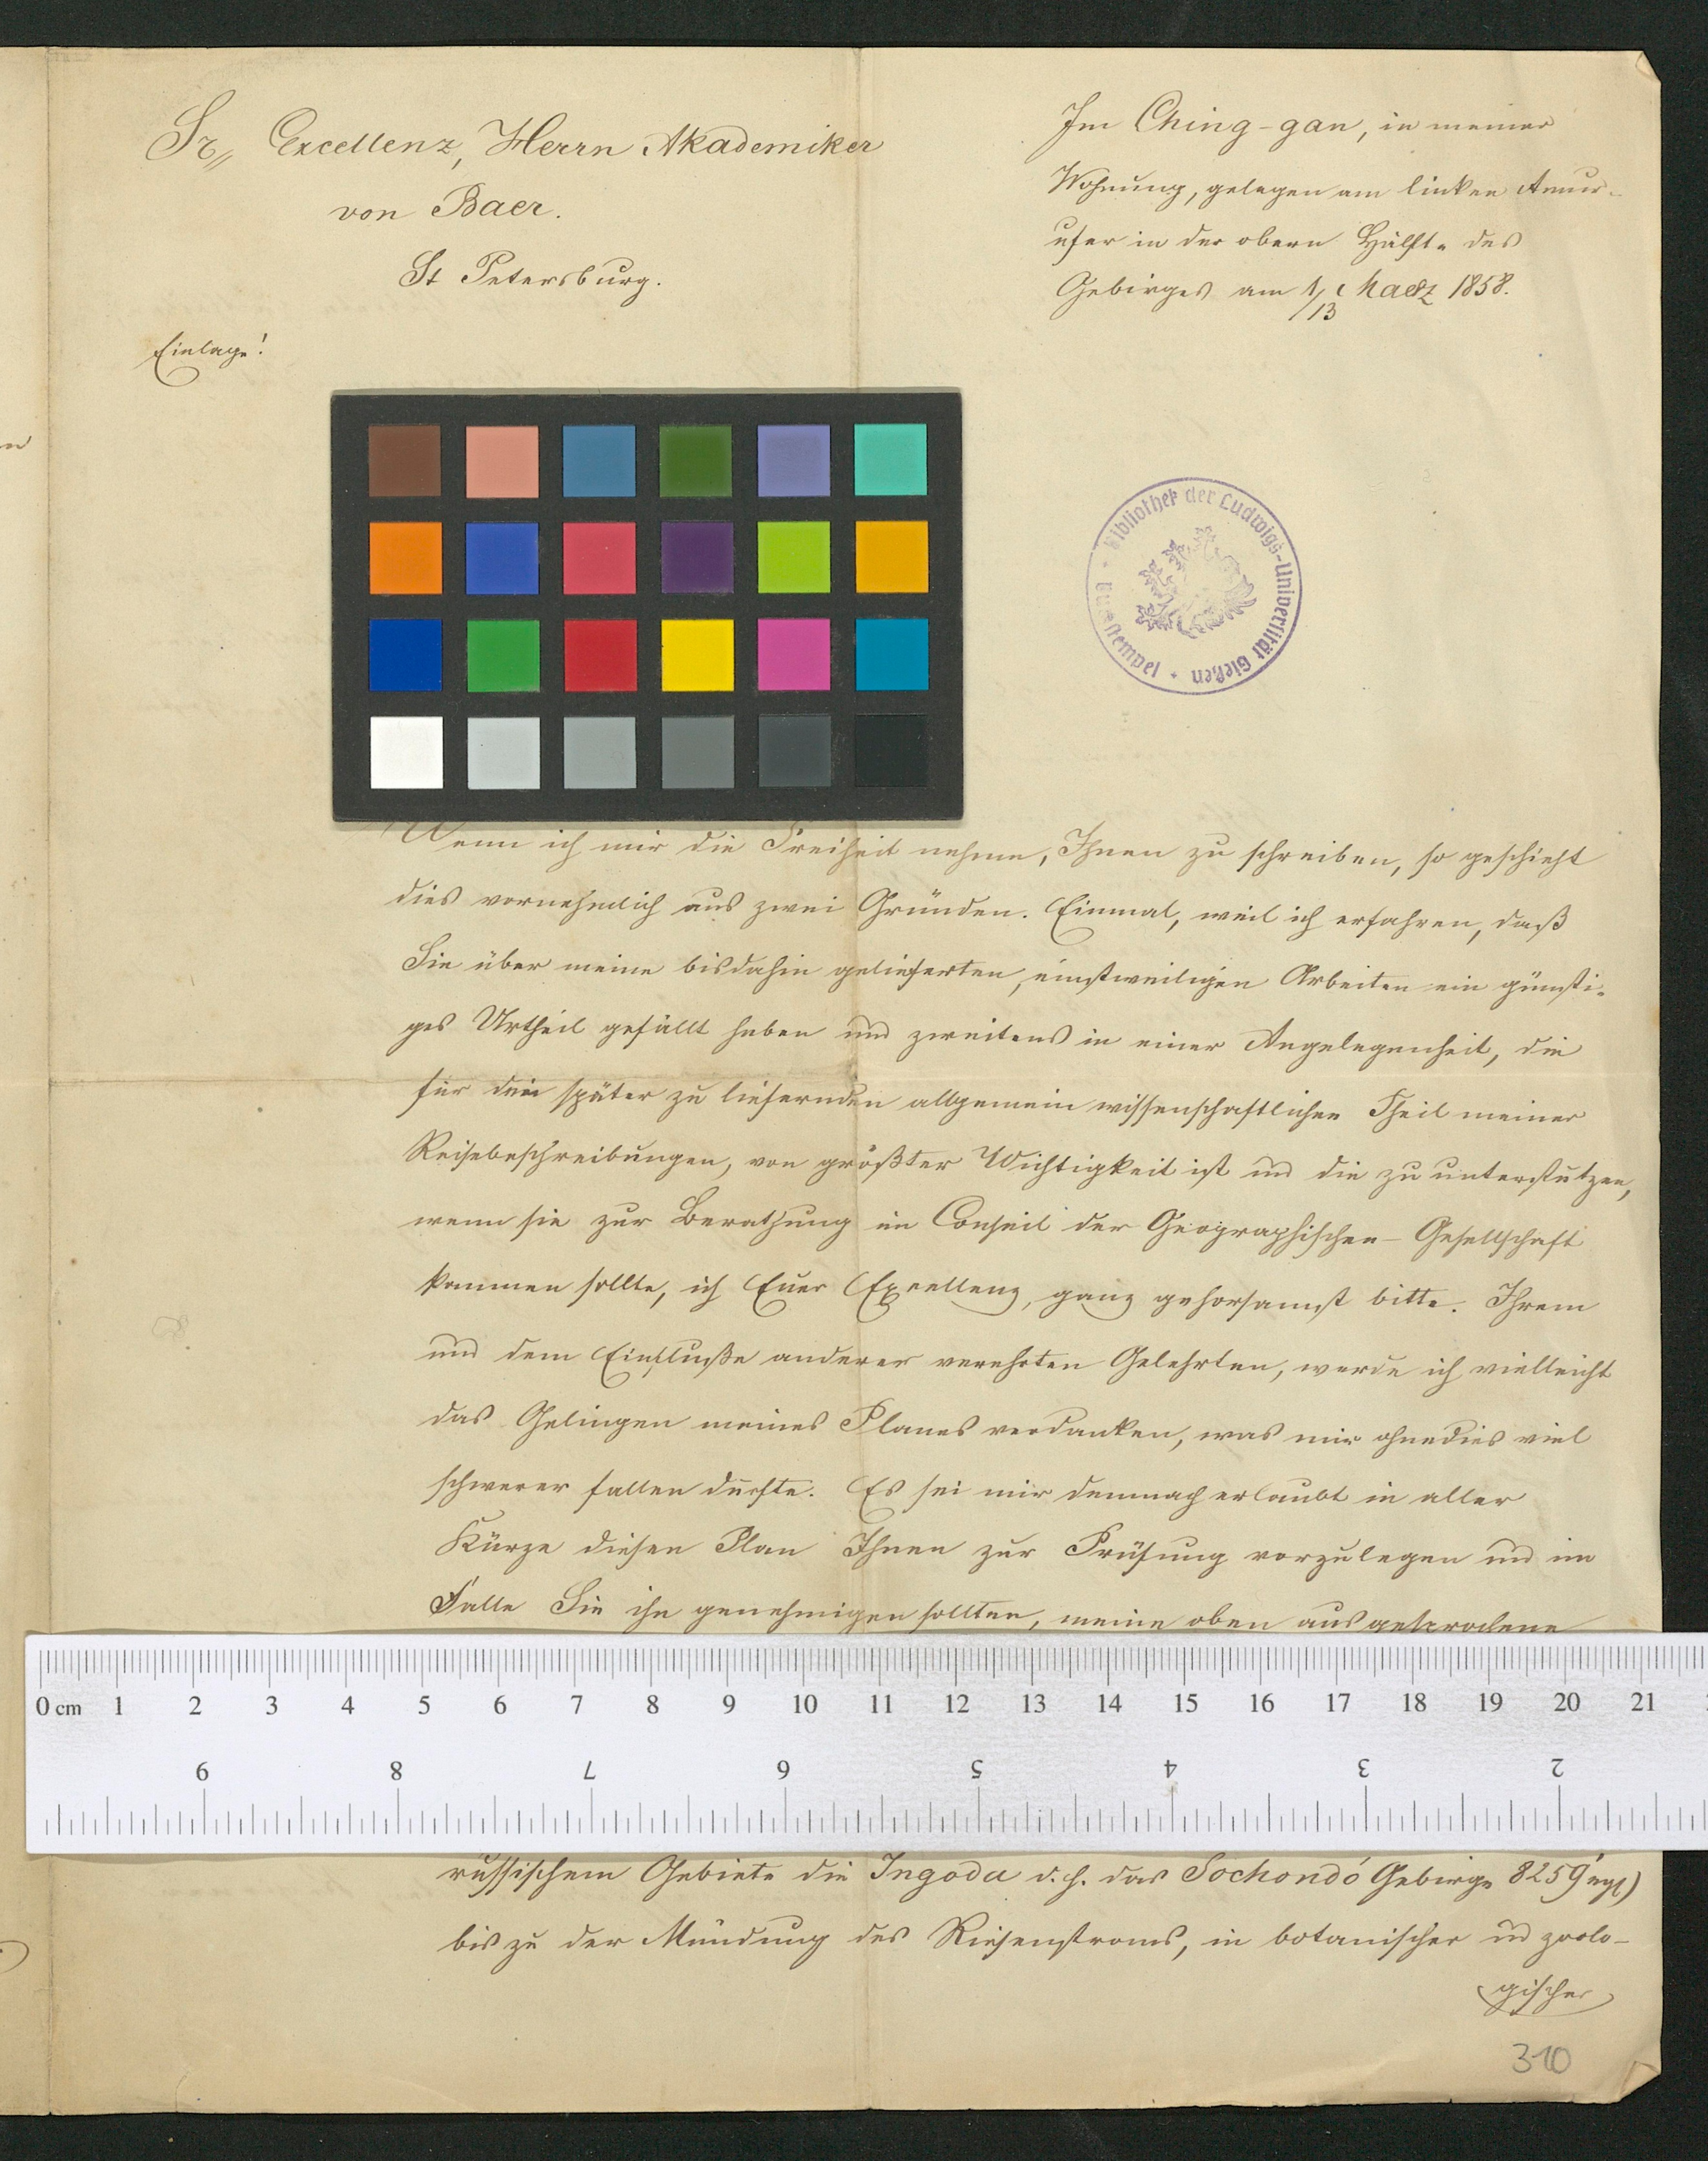 Sr Excellenz, Herrn Akademiker
von Baer.
St Petersburg.
Einlage!
Im Ching-gan, in meiner
Wohnung, gelegen am linken Amur-
ufer in der obern Hälfte des
Gebirges am 1/13 Maerz 1858.
Bibliothek der Ludwigs-Universität Gießen
Wenn ich mir die Freiheit nehme, Ihnen zu schreiben, so geschieht
dies vornehmlich aus zwei Gründen. Einmal, weil ich erfahren, daß
Sie über meine bisdahin gelieferten, einstweiligen Arbeiten ein günsti-
ges Urtheil gefällt haben und zweitens in einer Angelegenheit, die
für den später zu liefernden allgemein wissenschaftlichen Theil meiner
Reisebeschreibungen, von größter Wichtigkeit ist und die zu unterstützen,
wenn sie zur Berathung im Conseil der Geographischen-Gesellschaft
kommen sollte, ich Euer Excellenz, ganz gehorsamst bitte. Ihrem
und dem Einfluße anderer verehrten Gelehrten, werde ich vielleicht
das Gelingen meines Planes verdanken, was mir ohnedies viel
schwerer fallen dürfte. Es sei mir demnach erlaubt in aller
Kürze diesen Plan Ihnen zur Prüfung vorzulegen und im
Falle Sie ihn genehmigen sollten, meine oben ausgesprochene
0 cm 1 2 3 4 5 6 7 8 9 10 11 12 13 14 15 16 17 18 19 20 21
9 8 7 6 5 4 3 2
russischem Gebiete die Ingoda d. h. das Sochondó Gebirge 8259' engl)
bis zu der Mündung des Riesenstroms, in botanischer und zoolo-
gischer
310